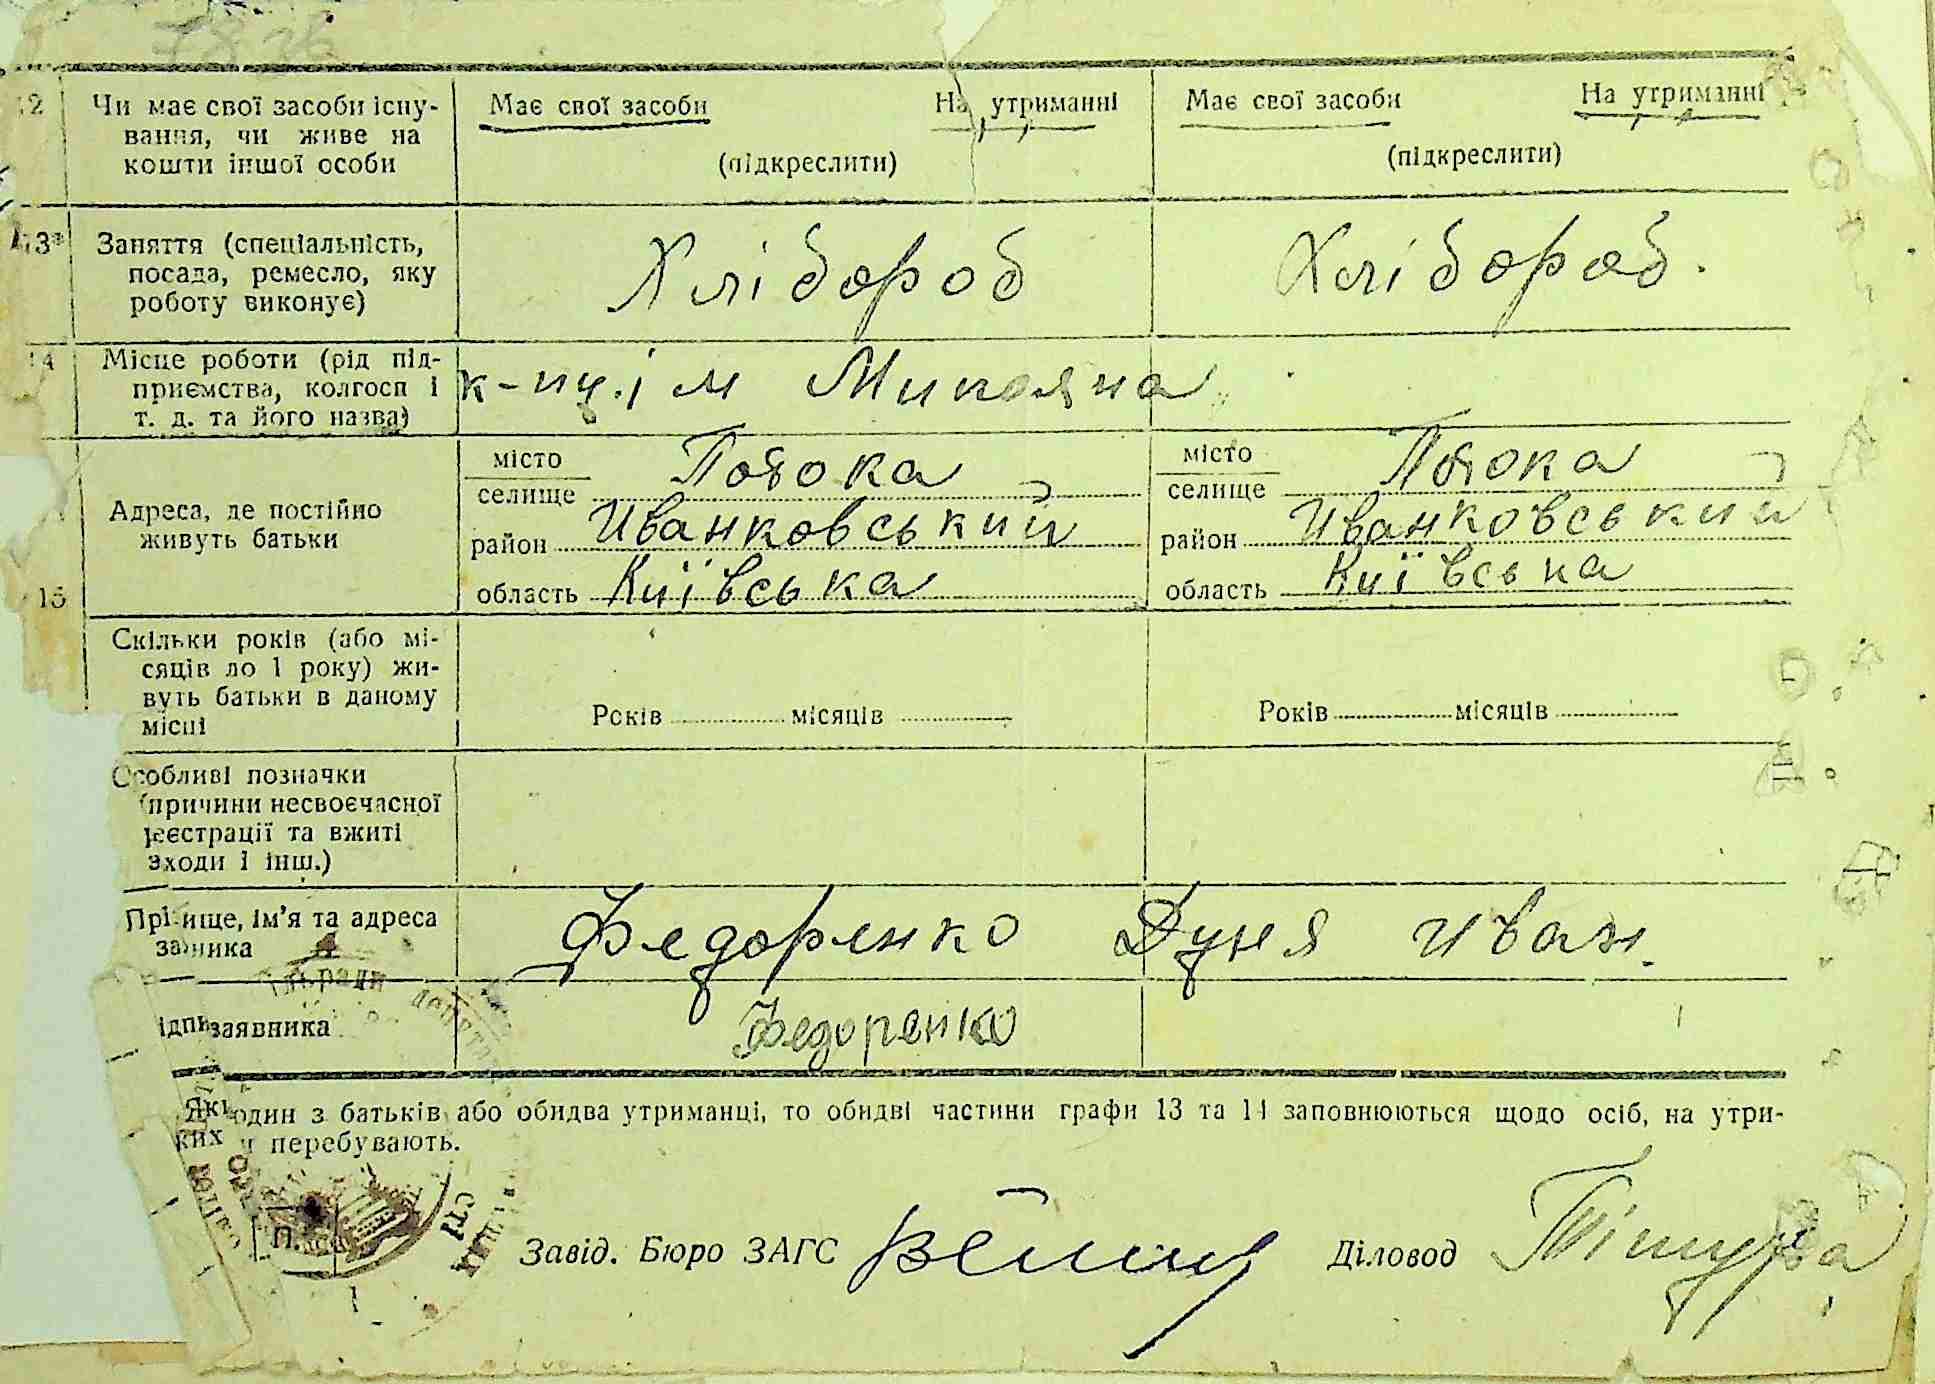 12 Чи має свої засоби існу- Має свої засоби На утриманні Має свої засоби На утриманні
вання, чи живе на
кошти іншої особи (підкреслити) (підкреслити)
13* Заняття (спеціальність,
посада, ремесло, яку Хлібороб Хлібороб.
роботу виконує)
14 Місце роботи (рід під-
приємства, колгосп і к-пц. ім Микояна
т. д. та його назва)
місто Потока місто Потока
селище селище
Адреса, де постійно район Иванковський район Иванковський
живуть батьки
15 область Київська область Київська
Скільки років (або мі-
сяців до 1 року) жи-
вуть батьки в даному Років місяців Років місяців
місці
Особливі позначки
(причини несвоєчасної
реєстрації та вжиті
заходи і інш.)
Прізвище, ім'я та адреса Федоренко Дуня Иван.
заявника
Підпис заявника Федоренко
один з батьків або обидва утриманці, то обидві частини графи 13 та 14 заповнюються щодо осіб, на утри-
ких перебувають.
Завід. Бюро ЗАГС Діловод